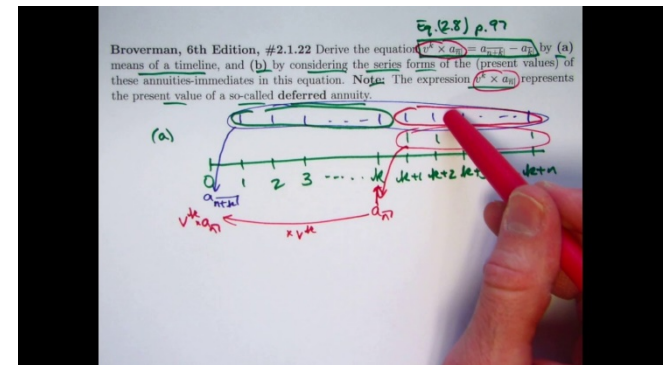 Eq. (2.8) p. 97
Broverman, 6th Edition, #2.1.22 Derive the equation v^k × a_n̅| = a_n+k̅| − a_k̅| by (a)
means of a timeline, and (b) by considering the series forms of the (present values) of
these annuities-immediates in this equation. Note: The expression v^k × a_n̅| represents
the present value of a so-called deferred annuity.
(a)
1 1 1 ... 1 1 1 ... 1
1 1 1
0 1 2 3 ..... k k+1 k+2 k+n
a_n+k̅|
v^k × a_n̅| × v^k a_n̅|